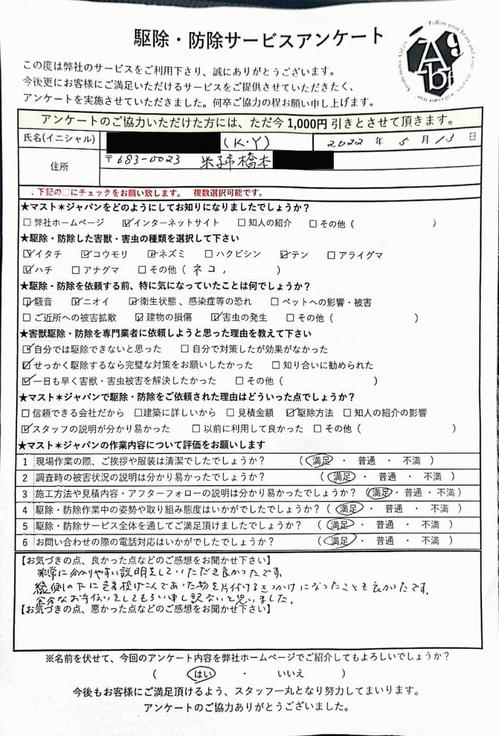 駆除・防除サービスアンケート
この度は弊社のサービスをご利用下さり、誠にありがとうございます。
今後更にお客様にご満足いただけるサービスをご提供させていただきたく、
アンケートを実施させていただきました。何卒ご協力の程お願い申し上げます。
アンケートのご協力いただけた方には、ただ今1,000円引きとさせて頂きます。
氏名(イニシャル) (K・Y) 2022年 5月 13日
住所 〒683-0023 米子市橋本
↓下記の□にチェックをお願い致します。 複数選択可能です。
★マスト✶ジャパンをどのようにしてお知りになりましたでしょうか?
□弊社ホームページ ☑インターネットサイト □知人の紹介 □その他( )
★駆除・防除した害獣・害虫の種類を選択して下さい
☑イタチ ☑コウモリ ☑ネズミ □ハクビシン ☑テン □アライグマ
☑ハチ □アナグマ □その他(ネコ, )
★駆除・防除を依頼する前、特に気になっていたことは何でしょうか?
☑騒音 ☑ニオイ ☑衛生状態、感染症等の恐れ □ペットへの影響・被害
□ご近所への被害拡散 ☑建物の損傷 ☑害虫の発生 □その他( )
★害獣駆除・防除を専門業者に依頼しようと思った理由を教えて下さい
☑自分では駆除できないと思った □自分で対策したが効果がなかった
☑せっかく駆除するなら完璧な対策をお願いしたかった □知り合いに勧められた
☑一日も早く害獣・害虫被害を解決したかった □その他( )
★マスト✶ジャパンで駆除・防除をご依頼された理由はどういった点でしょうか?
□信頼できる会社だから □建築に詳しいから □見積金額 ☑駆除方法 □知人の紹介の影響
☑スタッフの説明が分かり易かった □以前に利用して良かった □その他( )
★マスト✶ジャパンの作業内容について評価をお願いします
1 現場作業の際、ご挨拶や服装は清潔でしたでしょうか? (満足・普通・不満)
2 調査時の被害状況の説明は分かり易かったでしょうか? (満足・普通・不満)
3 施工方法や見積内容・アフターフォローの説明は分かり易かったでしょうか? (満足・普通・不満)
4 駆除・防除作業中の姿勢や取り組み態度はいかがでしたでしょうか? (満足・普通・不満)
5 駆除・防除サービス全体を通してご満足頂けましたでしょうか? (満足・普通・不満)
6 お問い合わせの際の電話対応はいかがでしたでしょうか? (満足・普通・不満)
【お気づきの点、良かった点などのご感想をお聞かせ下さい】
非常に分かりやすい説明をしていただき良かったです。
縁側の下に投げこんであった物を片付けるきっかけになったことも良かったです。
余分なお手伝いをしてもらい申し訳ないと思いました。
【お気づきの点、悪かった点などのご感想をお聞かせ下さい】
※名前を伏せて、今回のアンケート内容を弊社ホームページでご紹介してもよろしいでしょうか?
( はい ・ いいえ )
今後もお客様にご満足頂けるよう、スタッフ一丸となり努力してまいります。
アンケートのご協力ありがとうございました。